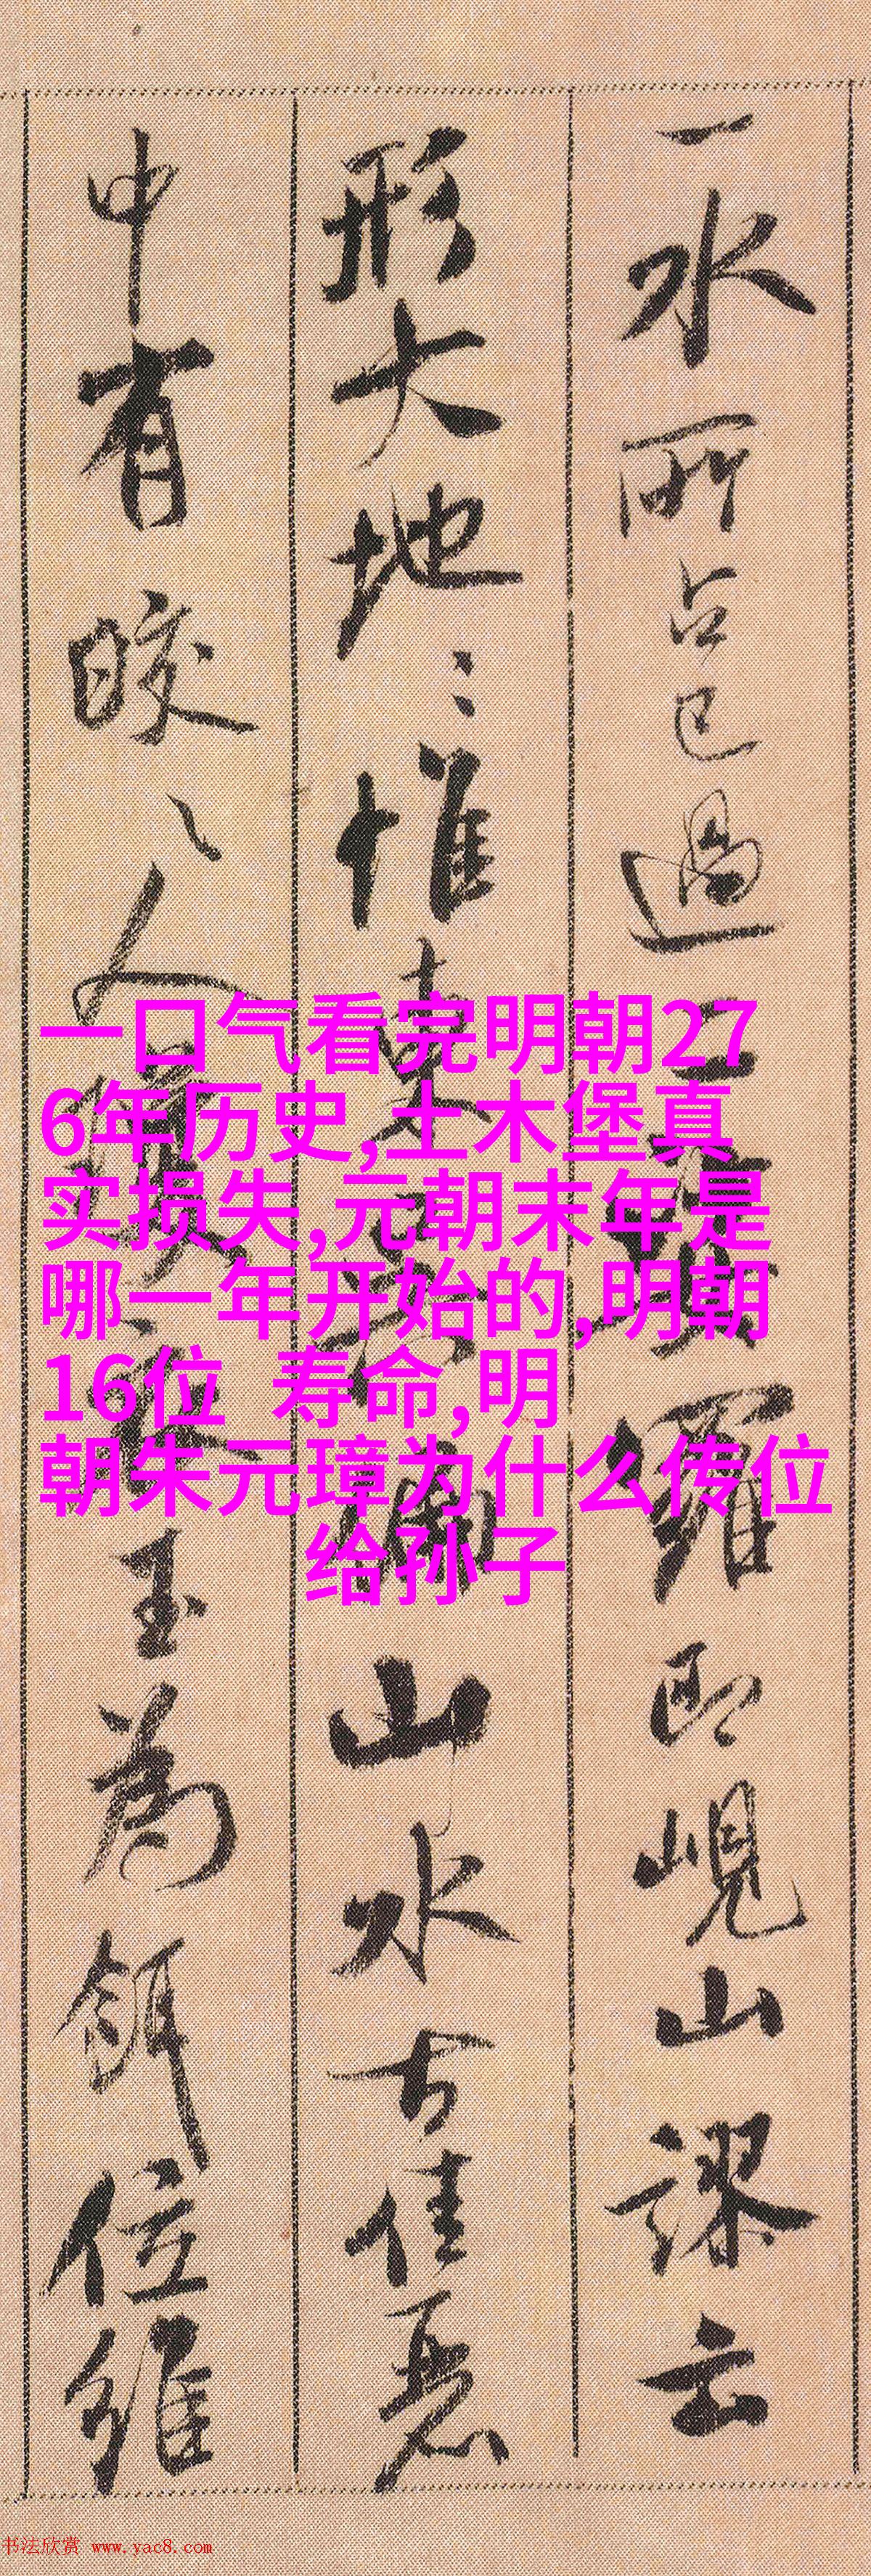 一水所占已過二
羅即峴山謬云
形大地〻惟東
山水古佳惡
中有皎〻人
玉為餌位維
一口气看完明朝27
6年历史,土木堡真
实损失,元朝末年是
哪一年开始的,明朝
16位 寿命,明
朝朱元璋为什么传位
给孙子
书法欣赏 www.yac8.com